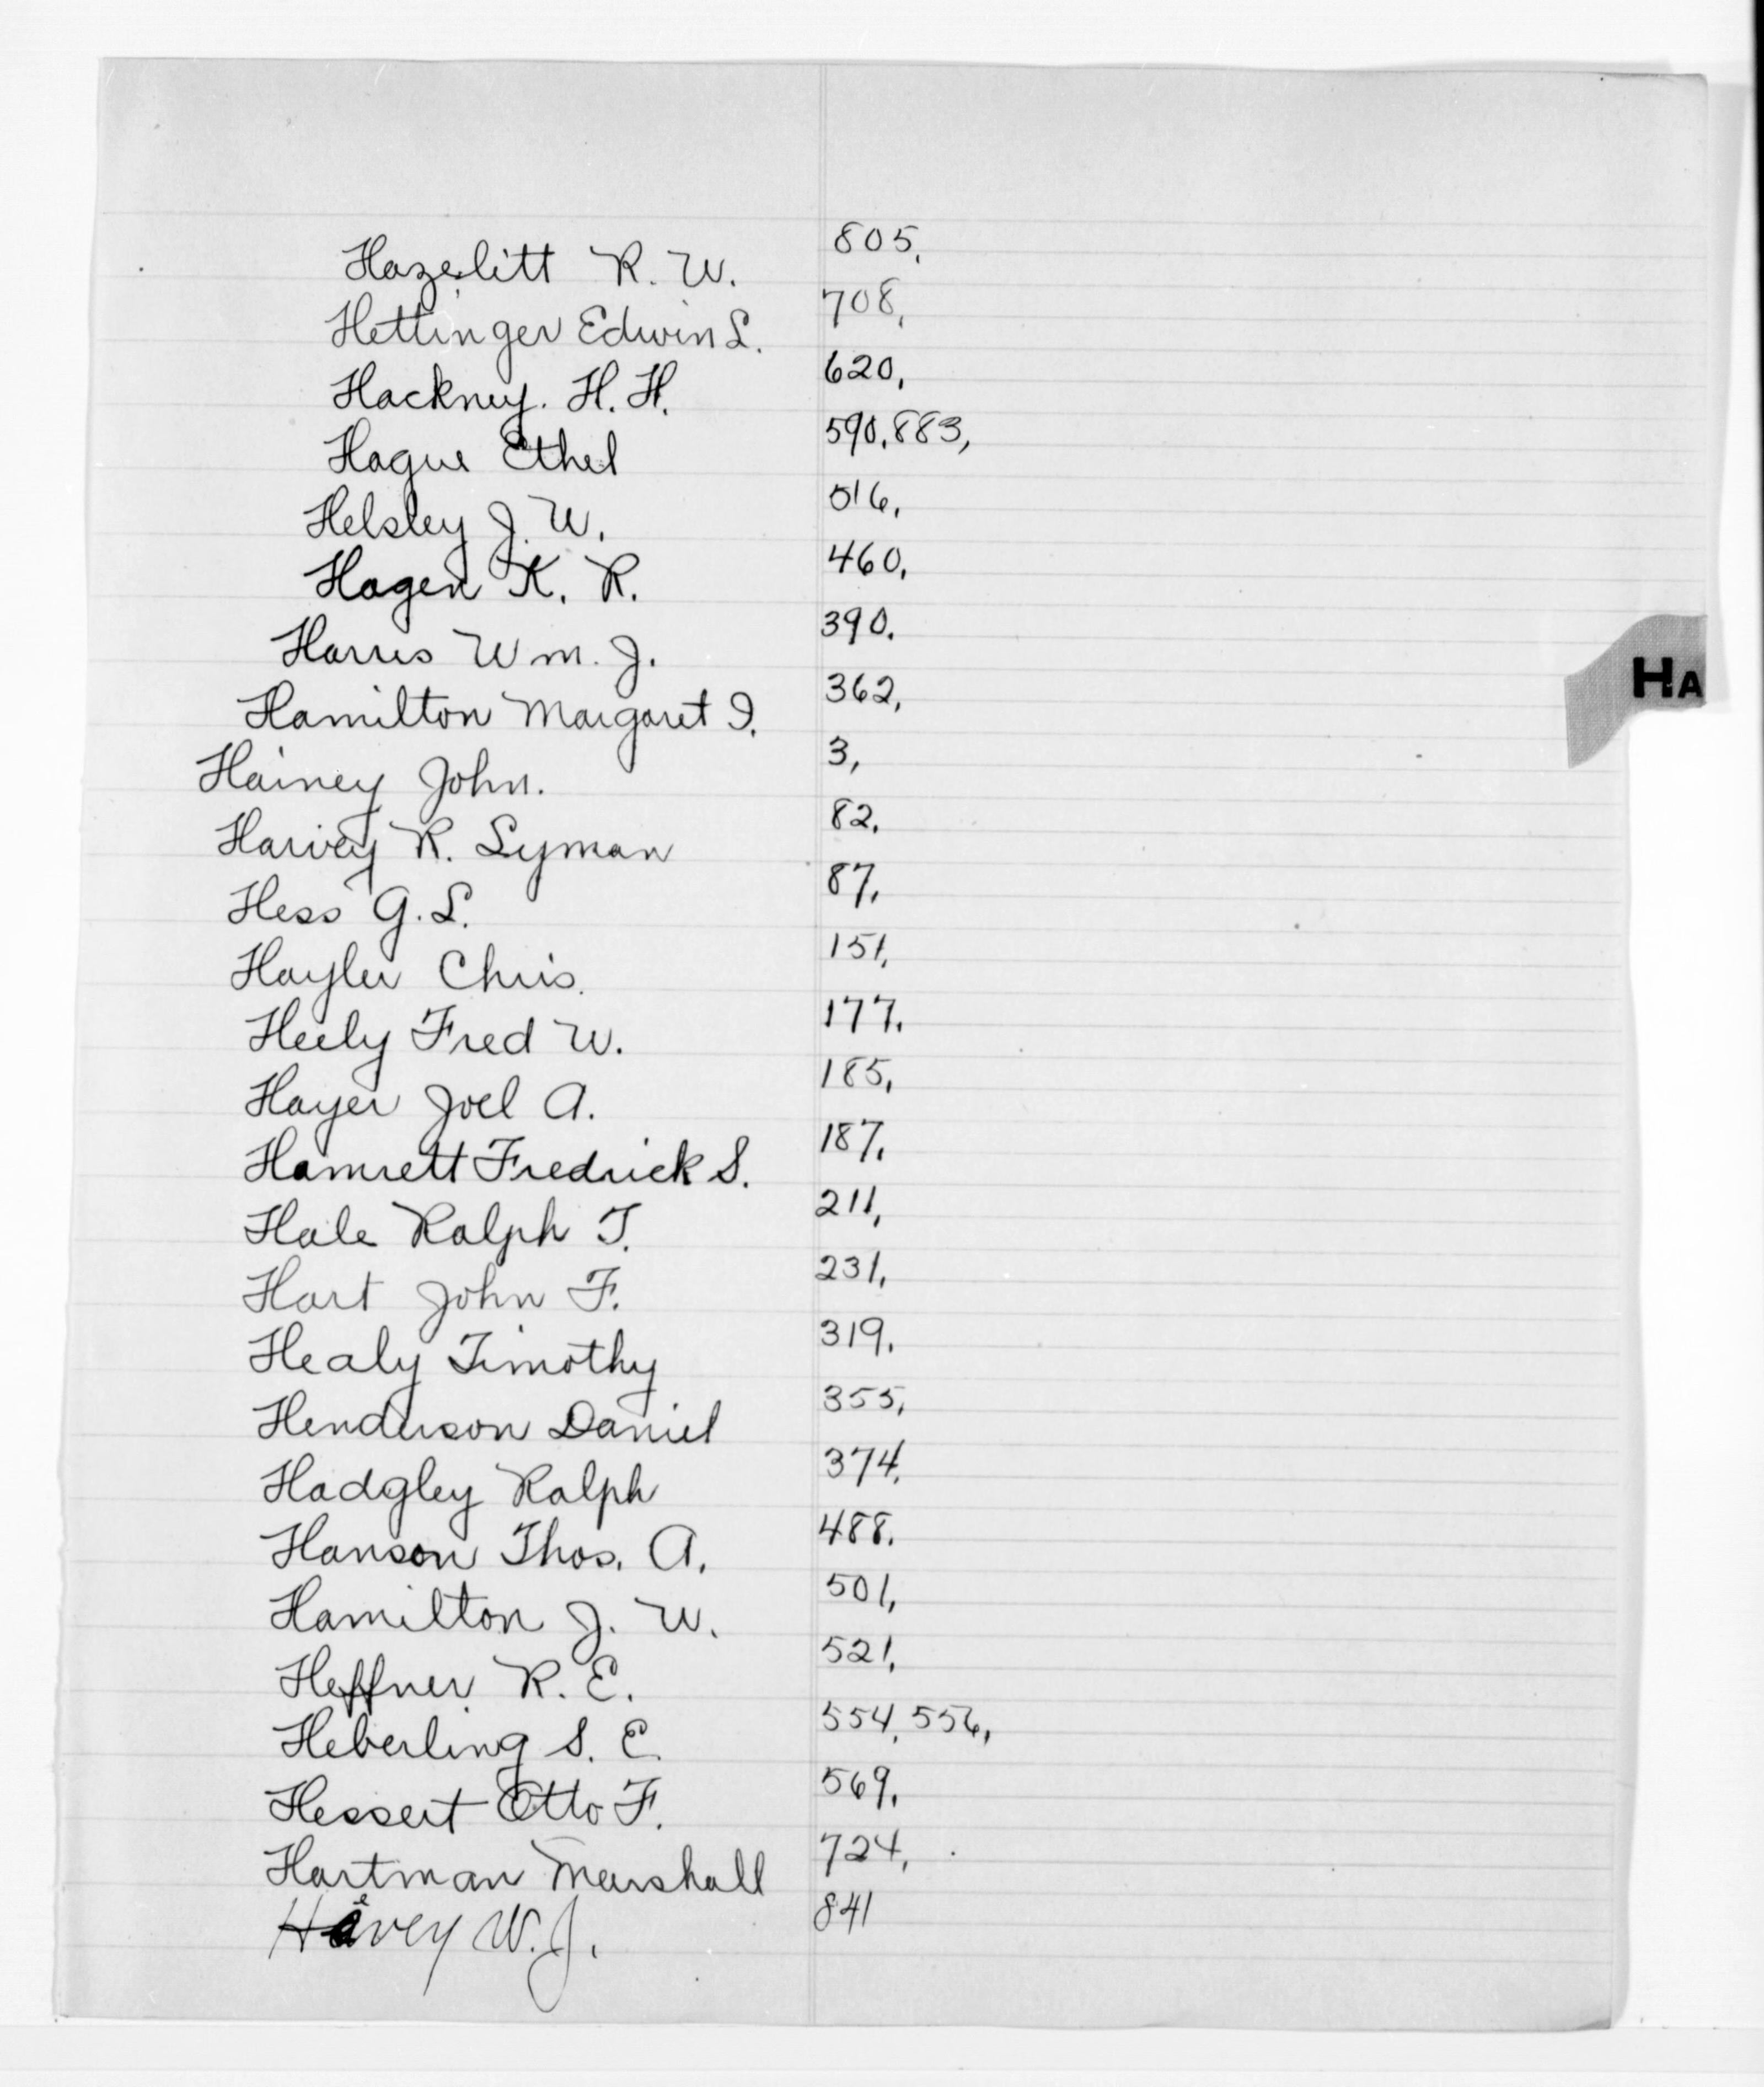 Hazelitt R. W. 805,
Hettinger Edwin L. 708,
Hackney. H. H. 620,
Hague Ethel 590, 883,
Helsley J. W. 516,
Hagen K. R. 460,
Harris Wm. J. 390.
HA
Hamilton Margaret I. 362,
Hainey John. 3,
Harvey R. Lyman 82,
Hess G. L. 87,
Hayler Chris. 151,
Heely Fred W. 177,
Hayer Joel A. 185,
Hamrett Fredrick S. 187,
Hale Ralph T. 211,
Hart John F. 231,
Healy Timothy 319,
Henderson Daniel 355,
Hadgley Ralph 374,
Hanson Thos. A. 488,
Hamilton J. W. 501,
Heffner R. E. 521,
Heberling S. E. 554, 556,
Hessert Otto F. 569,
Hartman Marshall 724,
W. J. 841